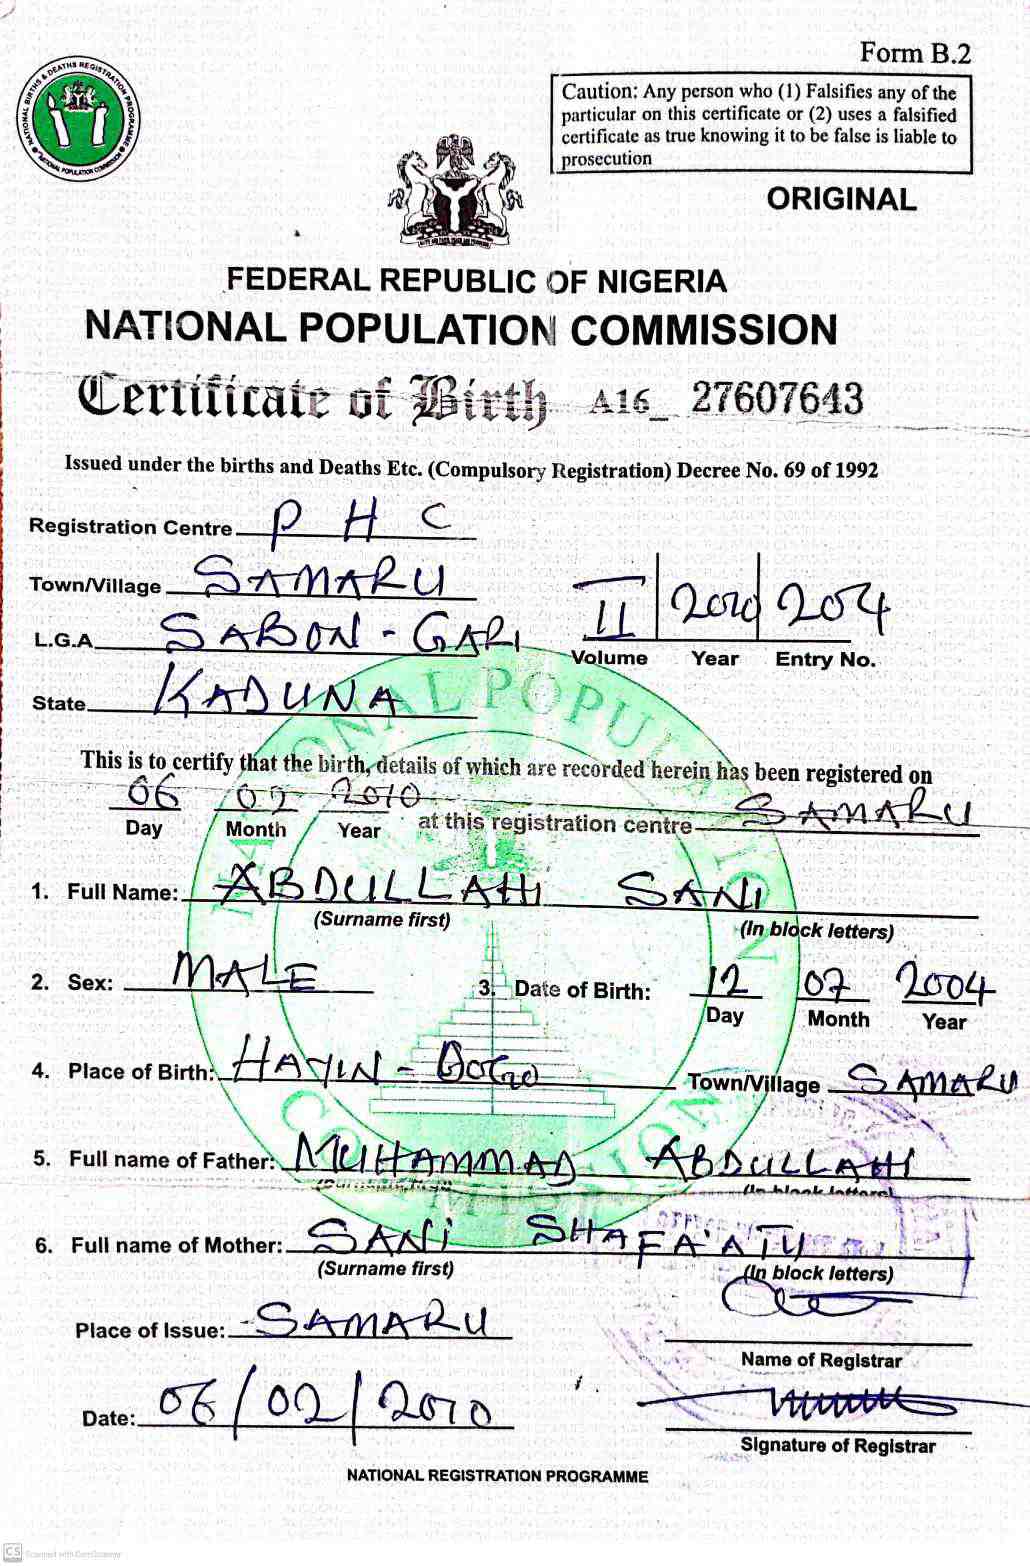 Form B.2
NATIONAL BIRTHS & DEATHS REGISTRATION PROGRAMME
NATIONAL POPULATION COMMISSION
Caution: Any person who (1) Falsifies any of the
particular on this certificate or (2) uses a falsified
certificate as true knowing it to be false is liable to
prosecution
ORIGINAL
FEDERAL REPUBLIC OF NIGERIA
NATIONAL POPULATION COMMISSION
Certificate of Birth A16_ 27607643
Issued under the births and Deaths Etc. (Compulsory Registration) Decree No. 69 of 1992
Registration Centre P H C
Town/Village SAMARU
L.G.A. SABON-GARI
II 2010 204
Volume Year Entry No.
State KADUNA
NATIONAL POPULATION COMMISSION
This is to certify that the birth, details of which are recorded herein has been registered on
06 02 2010 at this registration centre SAMARU
Day Month Year
1. Full Name: ABDULLAHI SANI
(Surname first) (In block letters)
2. Sex: MALE 3. Date of Birth: 12 07 2004
Day Month Year
4. Place of Birth: HAYIN-DOGO Town/Village SAMARU
5. Full name of Father: MUHAMMAD ABDULLAHI
(Surname first) (In block letters)
6. Full name of Mother: SANI SHAFA'ATU
(Surname first) (In block letters)
Place of Issue: SAMARU
Name of Registrar
Date: 06/02/2010
Signature of Registrar
NATIONAL REGISTRATION PROGRAMME
CS Scanned with CamScanner